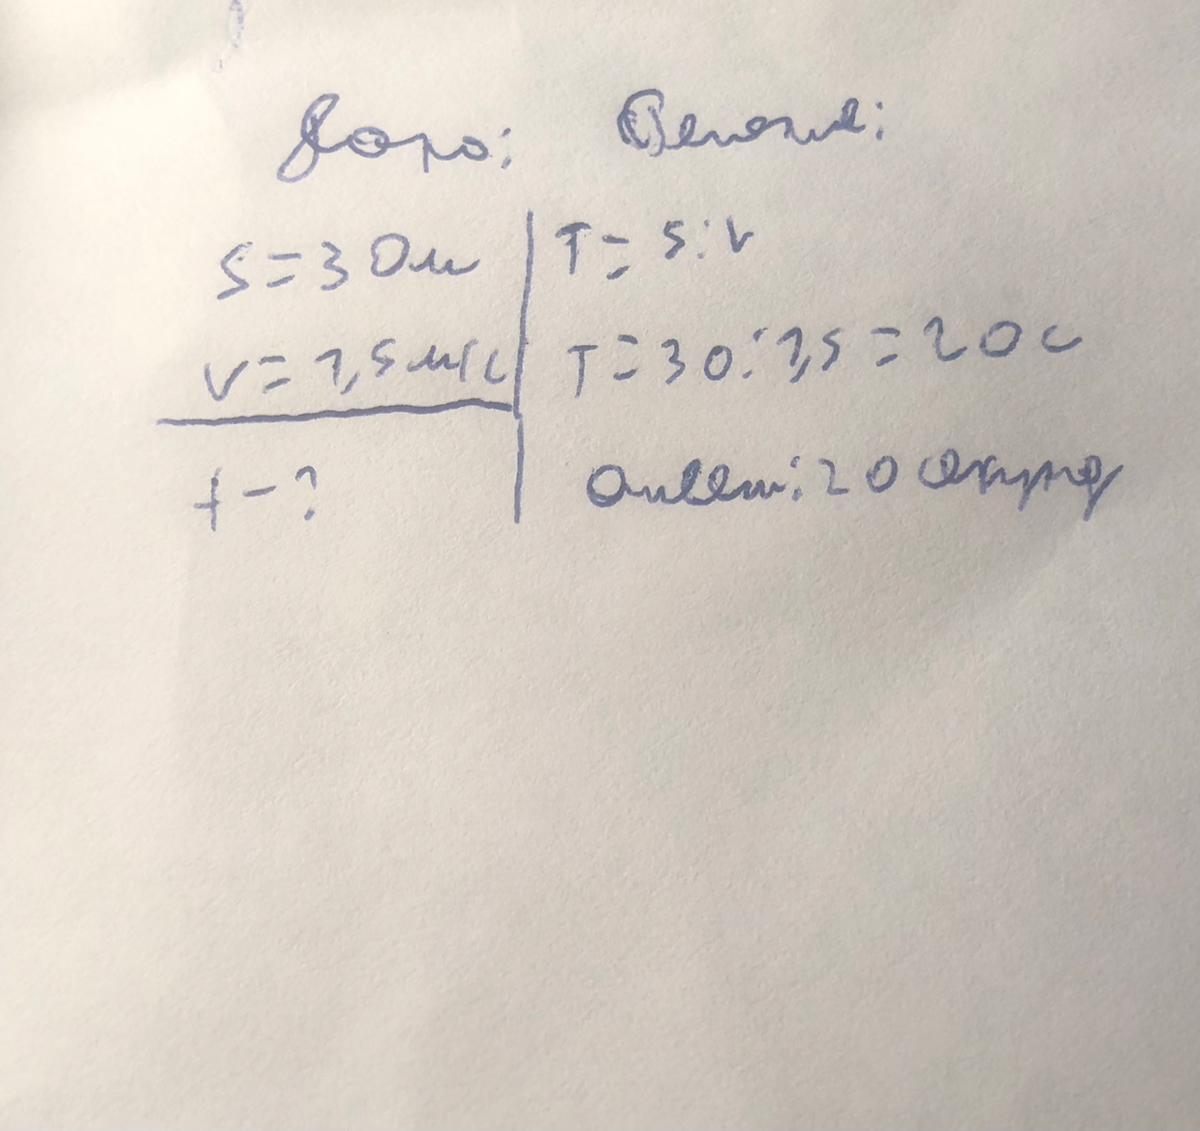 Дано: Решение:
S=30м T=S:V
V=1,5м/с T=30:1,5=20с
t-? Ответ: 20 секунд